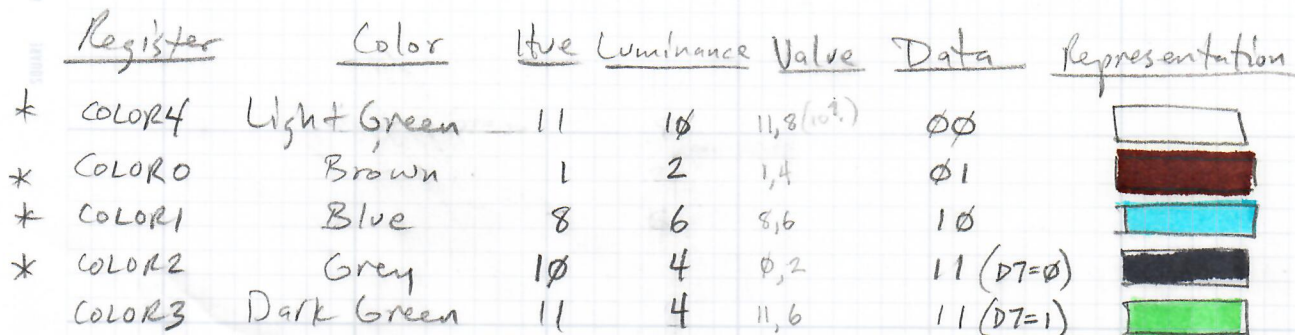 Register Color Hue Luminance Value Data Representation
* COLOR4 Light Green 11 1Ø 11,8 (10?) ØØ
* COLOR0 Brown 1 2 1,4 Ø1
* COLOR1 Blue 8 6 8,6 1Ø
* COLOR2 Grey 1Ø 4 Ø,2 11 (D7=Ø)
COLOR3 Dark Green 11 4 11,6 11 (D7=1)